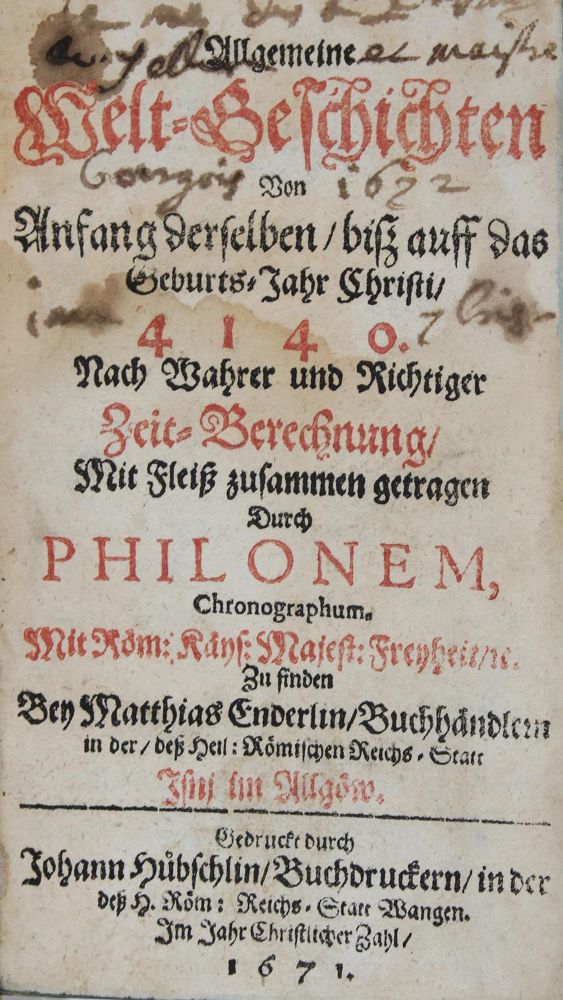 Allgemeine et maistre
Welt-Geschichten
1672
Von
Anfang derselben / biß auff das
Geburts-Jahr Christi /
4140.
Nach Wahrer und Richtiger
Zeit-Berechnung /
Mit Fleiß zusammen getragen
Durch
PHILONEM,
Chronographum.
Mit Röm: Käys: Majest: Freyheit / ꝛc.
Zu finden
Bey Matthias Enderlin / Buchhändlern
in der / deß Heil: Römischen Reichs-Statt
Jsni im Allgöw.
Gedruckt durch
Johann Hübschlin / Buchdruckern / in der
deß H. Röm: Reichs-Statt Wangen.
Im Jahr Christlicher Zahl /
1671.